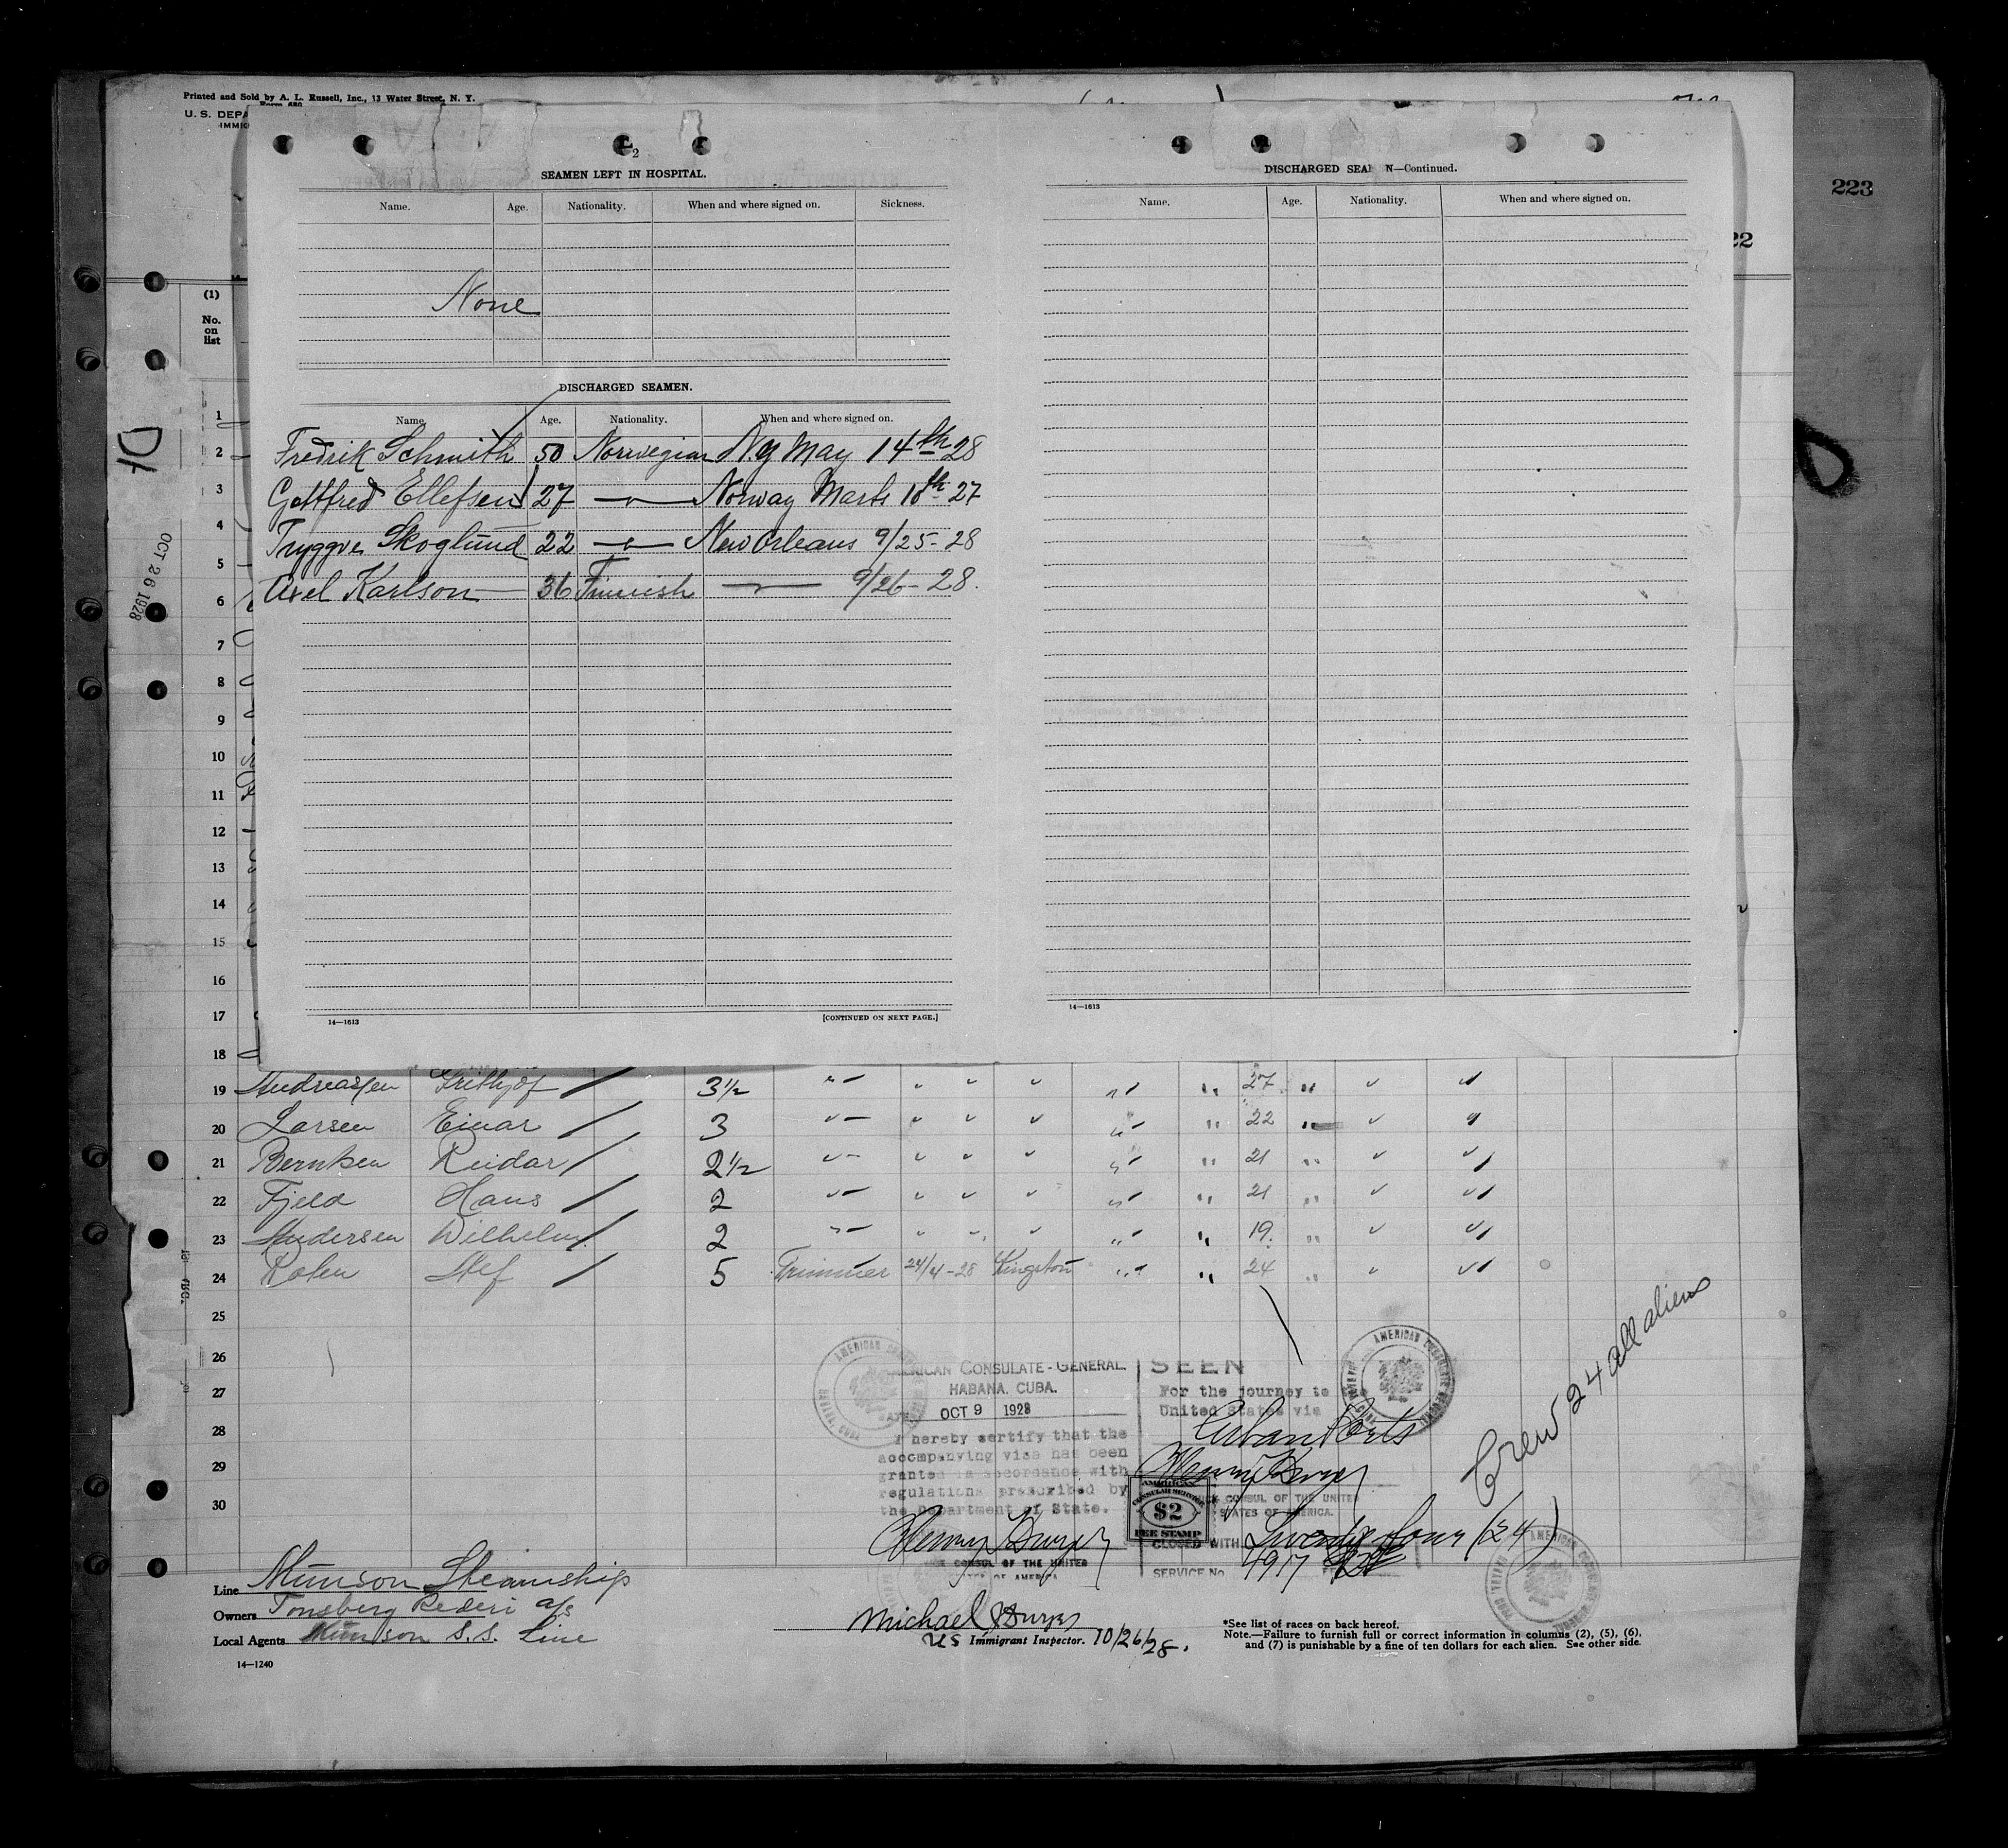 Printed and Sold by A. L. Russell, Inc., 13 Water Street, N. Y.
U. S. DEPA
IMMIG
223
22
2
SEAMEN LEFT IN HOSPITAL.
Name. Age. Nationality. When and where signed on. Sickness.
None
DISCHARGED SEAMEN.
Name. Age. Nationality. When and where signed on.
Fredrik Schmith 50 Norwegian Ny May 14th 28
Gottfred Ellefsen 27 — " — Norway Marts 18th 27
Tryggve Skoglund 22 — " — New Orleans 9/25-28
Axel Karlson 36 Finnish — " — 9/26-28.
14—1613 [CONTINUED ON NEXT PAGE.]
DISCHARGED SEA N—Continued.
Name. Age. Nationality. When and where signed on.
14—1613
(1)
No.
on
list
OCT 26 1928
1
2
3
4
5
6
7
8
9
10
11
12
13
14
15
16
17
18
19 Andreassen Frithjof 3½ " " " " " " 27 " " "
20 Larsen Einar 3 " " " " " " 22 " " "
21 Berntsen Reidar 2½ " " " " " " 21 " " "
22 Fjeld Hans 2 " " " " " " 21 " " "
23 Andersen Wilhelm 2 " " " " " " 19 " " "
24 5 Trimmer 24/4-28 Kingston " " 24 " " "
25
26
27
28
29
30
AMERICAN CONSULATE-GENERAL.
HABANA, CUBA.
DATE OCT 9 1928
I hereby certify that the
accompanying visa has been
granted in accordance with
regulations prescribed by
the Department of State.
CONSUL OF THE UNITED
STATES OF AMERICA
SEEN
For the journey to the
United States via
Cuban Ports
CONSUL OF THE UNITED
STATES OF AMERICA.
AMERICAN
CONSULAR SERVICE
$2
FEE STAMP
CLOSED WITH Twenty four (24)
SERVICE No. 4917
Crew 24 all aliens
Line Munson Steamship
Owners Tonsberg Rederi a/s
Local Agents Munson S.S. Line
14—1240
Michael
US Immigrant Inspector. 10/26/28.
*See list of races on back hereof.
Note.—Failure to furnish full or correct information in columns (2), (5), (6),
and (7) is punishable by a fine of ten dollars for each alien. See other side.